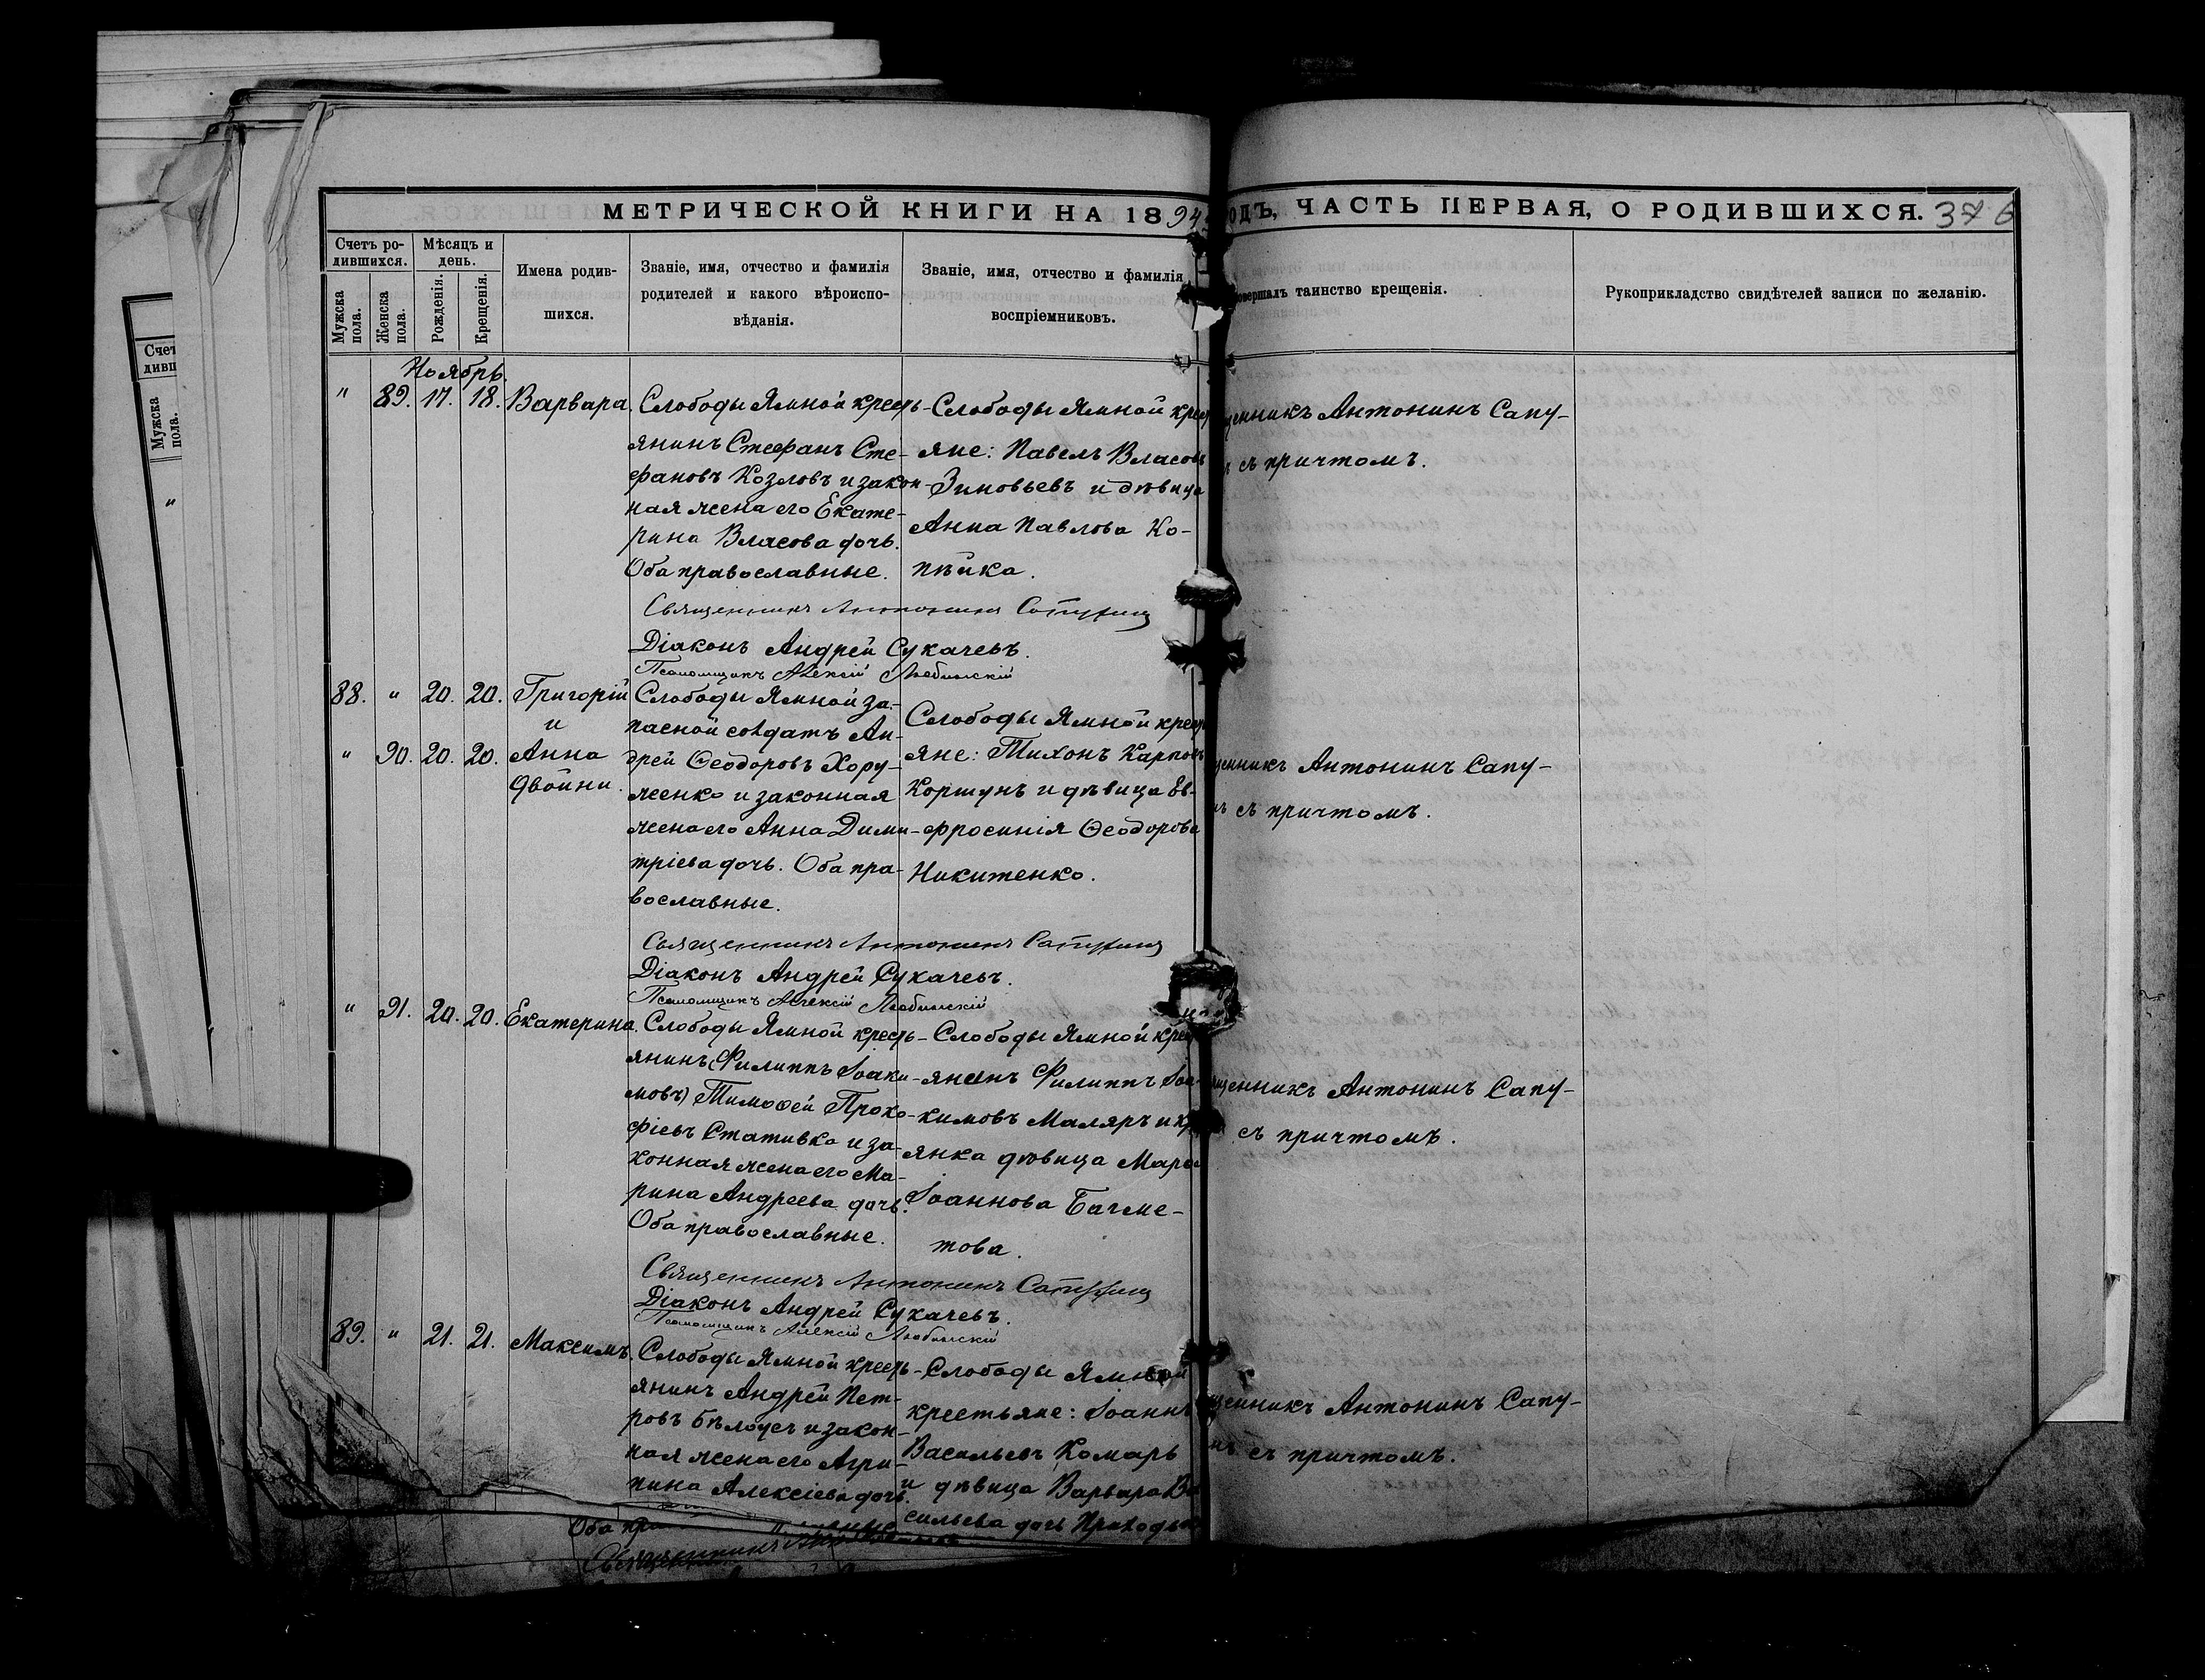 МЕТРИЧЕСКОЙ КНИГИ НА 1894 ГОДЪ, ЧАСТЬ ПЕРВАЯ, О РОДИВШИХСЯ. 376
Счетъ ро-
дившихся.
Мужска
пола.
Женска
пола.
Мѣсяцъ и
день.
Рожденія.
Крещенія.
Имена родив-
шихся.
Званіе, имя, отчество и фамилія
родителей и какого вѣроиспо-
вѣданія.
Званіе, имя, отчество и фамилія
воспріемниковъ.
совершалъ таинство крещенія.
Рукоприкладство свидѣтелей записи по желанію.
Счет
дивш
Мужска
пола.
Ноябрь.
" 89. 17. 18. Варвара.
Слободы Ямной кресть-
янинъ Стефанъ Сте-
фановъ Козловъ и закон-
ная жена его Екате-
рина Власова дочь.
Оба православные.
Слободы Ямной крест
яне: Павелъ Власовъ
Зиновьевъ и дѣвица
Анна Павлова Ко-
пѣйка.
щенникъ Антонинъ Сапу-
съ причтомъ.
Священникъ Антонинъ
Діаконъ Андрей Сукачевъ.
Псаломщикъ Алексій Любинскій
88. " 20. 20. Григорій
и
" 90. 20. 20. Анна
двойни.
Слободы Ямной за-
пасной солдатъ Ан-
дрей Ѳеодоровъ Хору-
женко и законная
жена его Анна Дими-
тріева дочь. Оба пра-
вославные.
Слободы Ямной крест
яне: Тихонъ Карповъ
Коршунъ и дѣвица Ев-
фросинія Ѳеодорова
Никитенко.
щенникъ Антонинъ Сапу-
нъ съ причтомъ.
Священникъ Антонинъ
Діаконъ Андрей Сукачевъ.
Псаломщикъ Алексій Любинскій
" 91. 20. 20. Екатерина.
Слободы Ямной кресть-
янинъ (Филиппъ Іоаки-
мовъ) Тимоѳей Проко-
фіевъ Стативка и за-
конная жена его Ма-
рина Андреева дочь.
Оба православные.
Слободы Ямной крест
янинъ Филиппъ Іоа-
кимовъ Маляръ и кр
янка дѣвица Марѳа
Іоаннова Багме-
това.
щенникъ Антонинъ Сапу-
съ причтомъ.
Священникъ Антонинъ
Діаконъ Андрей Сукачевъ.
Псаломщикъ Алексій Любинскій
89. " 21. 21. Максимъ.
Слободы Ямной кресть-
янинъ Андрей Пет-
ровъ Бѣлоусъ и закон-
ная жена его Агри-
пина Алексіева дочь.
Оба пра
Слободы Ямной
крестьяне: Іоаннъ
Васильевъ Комарь
и дѣвица Варвара Ва
сильева дочь
щенникъ Антонинъ Сапу-
нъ съ причтомъ.
Священникъ